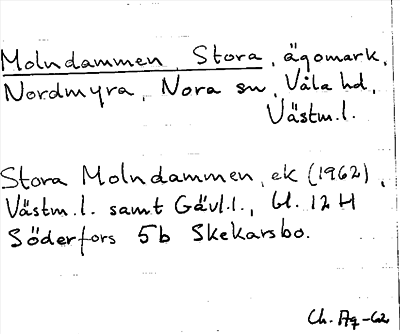 Molndammen, Stora, ägomark,
Nordmyra, Nora sn, Våla hd,
Västm.l.
Stora Molndammen, ek (1962),
Västm.l. samt Gävl.l., bl. 12 H
Söderfors 5b Skekarsbo.
Ch. Ag -62